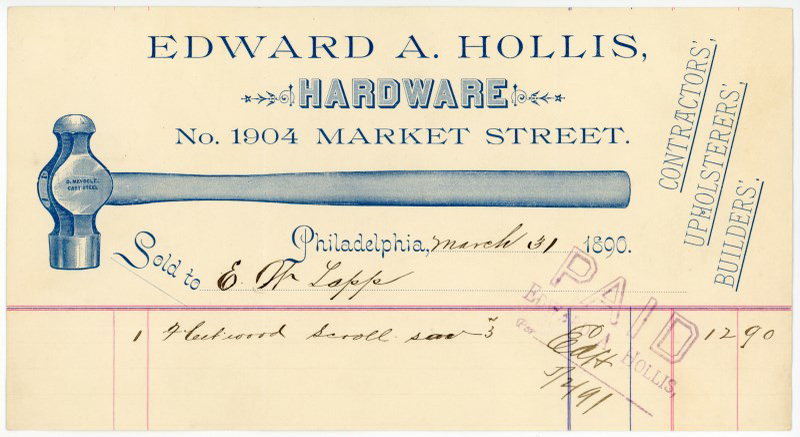 EDWARD A. HOLLIS,
HARDWARE
No. 1904 MARKET STREET.
CONTRACTORS',
UPHOLSTERERS',
BUILDERS',
D. MAYDOLE.
CAST STEEL
Philadelphia, March 31 1890.
Sold to E. W Lapp
1 Fleetwood Scroll saw #3 12 90
PAID
EDWARD A. HOLLIS,
Per
EdH
1/2/91